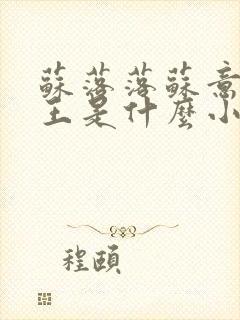 蘇落落蘇意
王是什麼小
程頤